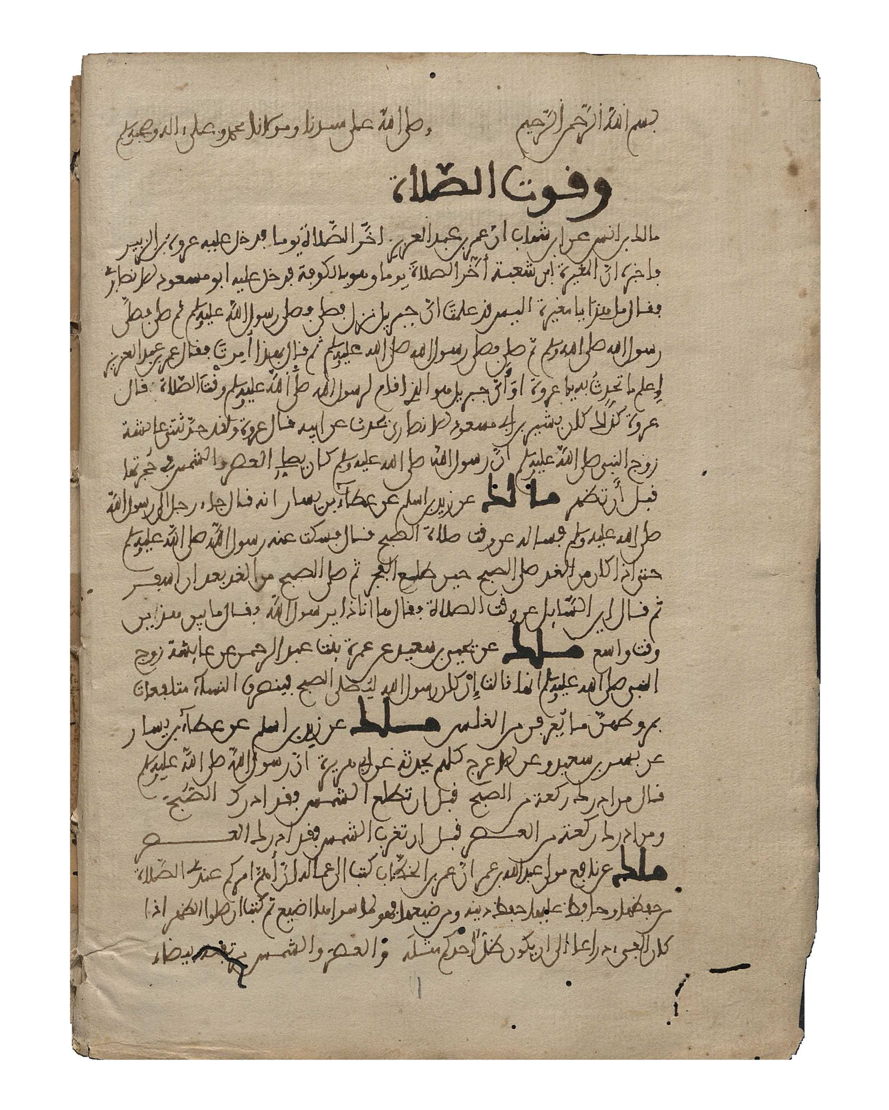 بسم الله الرحمن الرحيم وصلى الله على سيدنا ومولانا محمد وعلى ءاله وصحبه وسلم
وقوت الصّلاة
مالك بن انس عن ابن شهاب ان عمر بن عبد العزيز اخّر الصّلاة يوما فدخل عليه عروة بن الزبير
فاخبره انّ المغيرة ابن شعبة أخّر الصلاة يوما وهو بالكوفة فدخل عليه ابو مسعود الانصاري
فقال ما هذا يا مغيرة اليس قد علمت انّ جبريل نزل فصلى فصلى رسول الله صلى الله عليه وسلم ثم صلى فصلى
رسول الله صلى الله عليه وسلم ثم صلى فصلى رسول الله صلى الله عليه وسلم ثم قال بهذا أمرت فقال عمر بن عبد العزيز
اعلم ما تحدث به يا عروة اوَ أنّ جبريل هو الذي اقام لرسول الله صلى الله عليه وسلم وقت الصّلاة قال
عروة كذلك كان بشير بن ابي مسعود الانصاري يحدث عن ابيه قال عروة ولقد حدّثتني عايشة
زوج النبي صلى الله عليه وسلم انّ رسول الله صلى الله عليه وسلم كان يصلي العصر والشمس في حُجرتها
قبل أن تظهر مالك عن زيد بن اسلم عن عطاء بن يسار انه قال جاء رجل الى رسول الله
صلى الله عليه وسلم فساله عن وقت صلاة الصبح قال فسكت عنه رسول الله صلى الله عليه وسلم
حتى اذا كان من الغد صلى الصبح حين طلع الفجر ثم صلى الصبح من الغد بعد ان اسفر
ثم قال اين السّايل عن وقت الصلاة فقال ها انا ذا يرسول الله فقال ما بين هذين
وقت واسع مالك عن يحيى بن سعيد عن عمرة بنت عبد الرحمن عن عايشة زوج
النبي صلى الله عليه وسلم انها قالت إنْ كان رسول الله ليُصلى الصبح فينصرف النساء متلفعات
بمروطهنّ ما يُعرفن من الغلس مالك عن زيد بن اسلم عن عطاء بن يسار
عن بسر بن سعيد وعن الاعرج كلهم يحدثه عن ابي هريرة انّ رسول الله صلى الله عليه وسلم
قال من ادرك ركعة من الصبح قبل ان تطلع الشمس فقد ادرك الصّبح
ومن ادرك ركعة من العصر قبل ان تغرب الشمس فقد ادرك العصر
مالك عن نافع مولى عبد الله بن عمر انّ عمر بن الخطّاب كتب الى عماله انّ أهمّ امركم عندي الصّلاة
من حفظها وحافظ عليها حفظ دينه ومن ضيعها فهو لما سواها اضيع ثم كتب ان صلوا الظهر اذا
كان الفيء ذراعا الى ان يكون ظلّ أحدكم مثلَه والعصر والشمس مرتفعة بيضاء